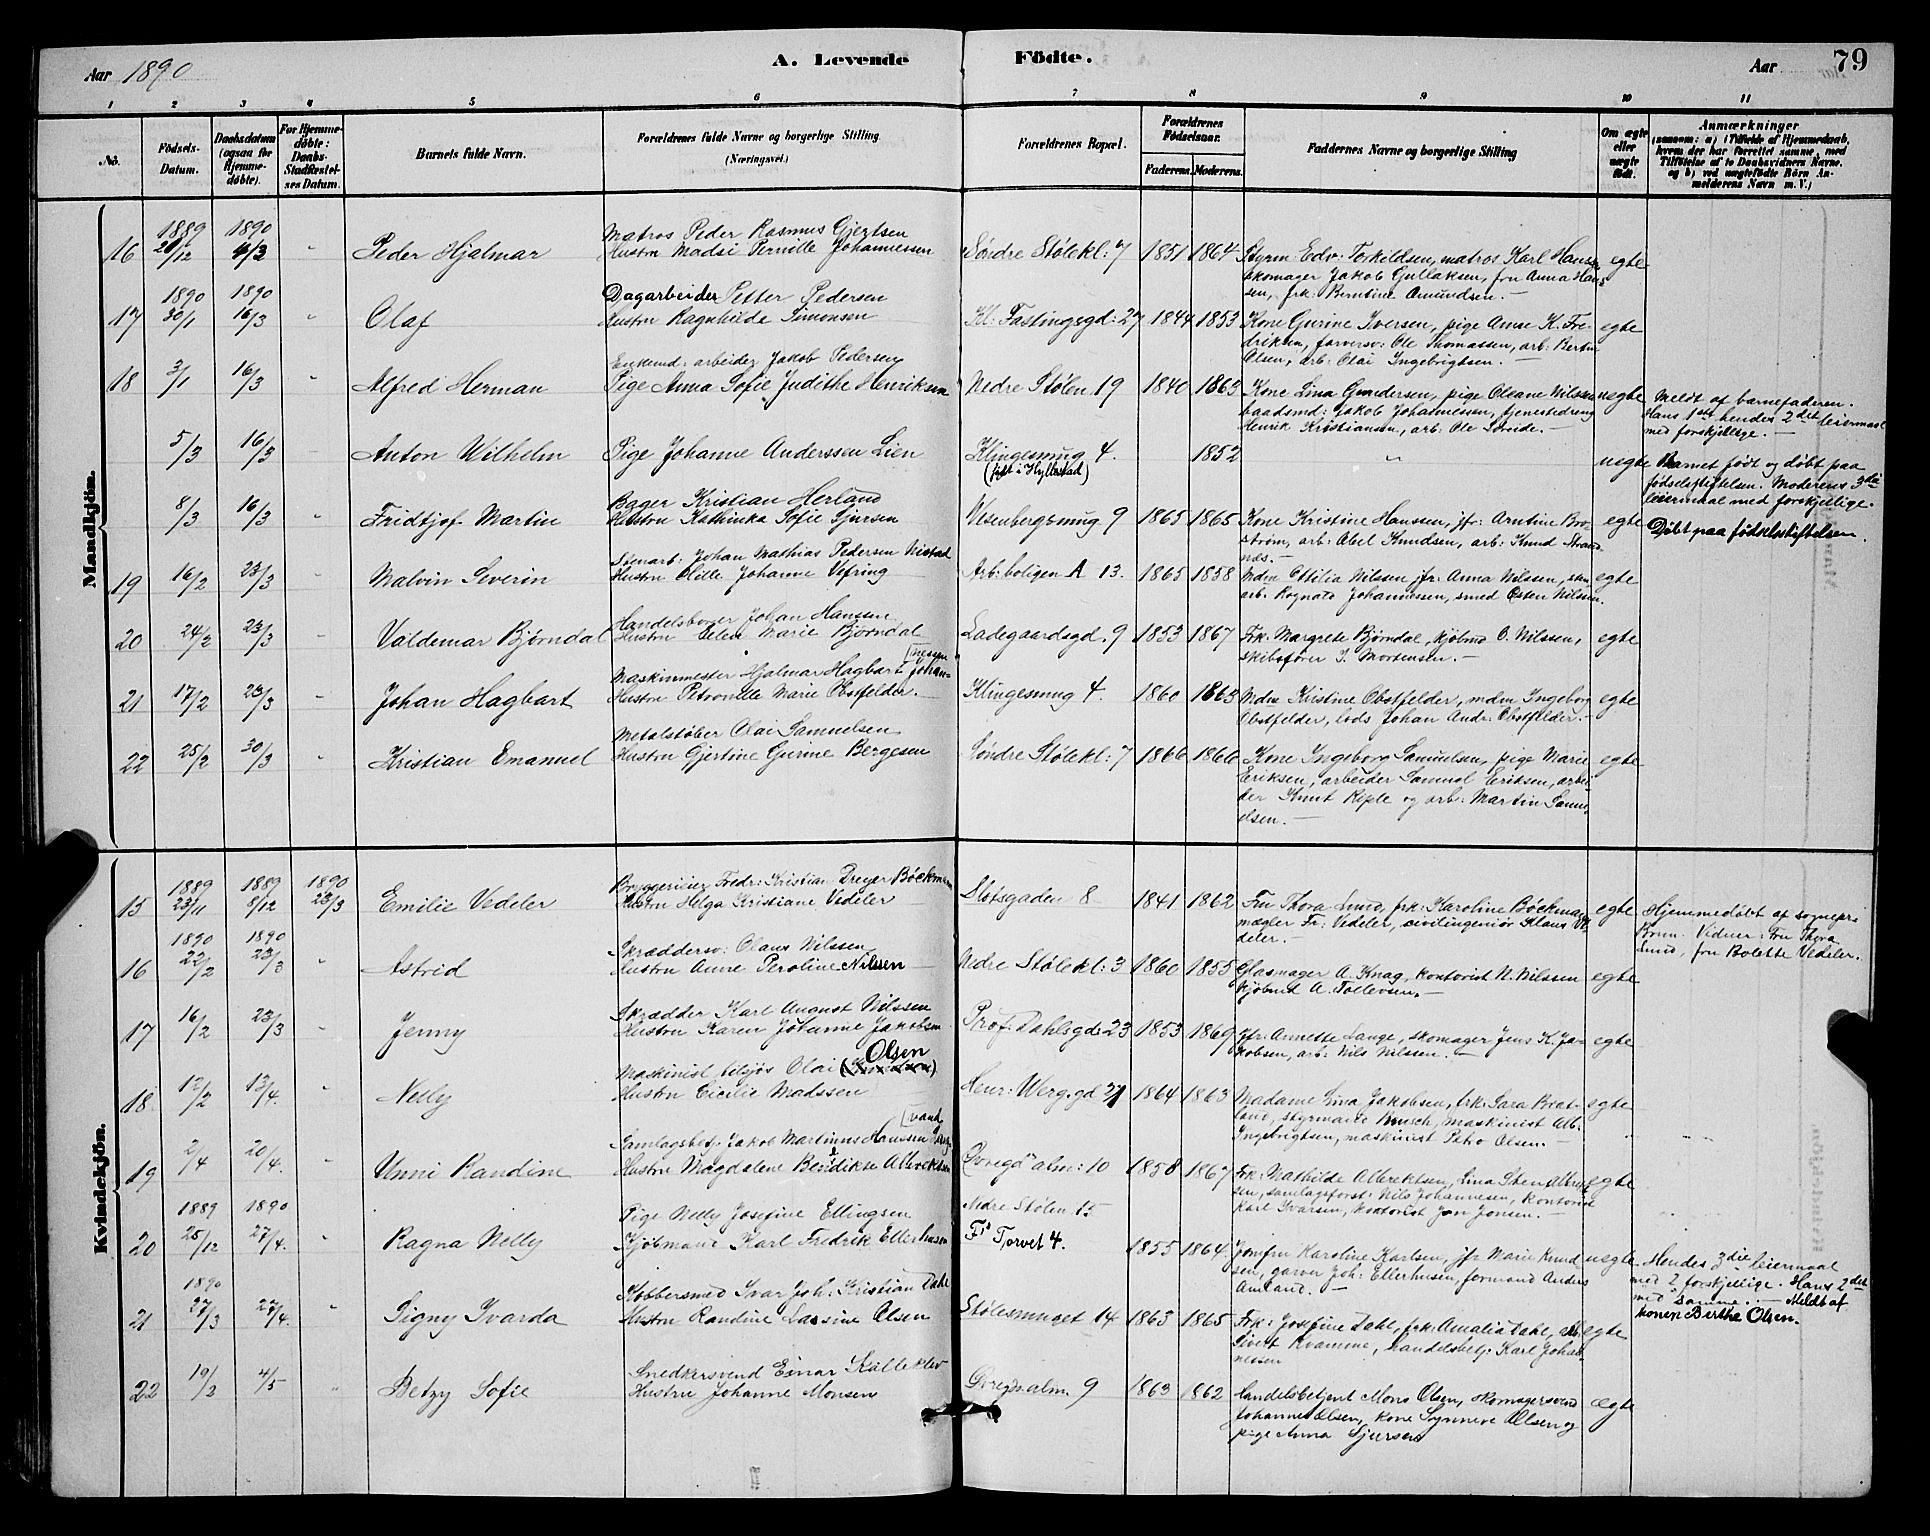 Aar 1890
A. Levende Födte.
Aar 79
1 2 3 4 5 6 7 8 9 10 11
No.
Födsels-Datum.
Daabsdatum (ogsaa for Hjemme-døbte).
For Hjemme-døbte: Daabs-Stadfæstel-ses Datum.
Barnets fulde Navn.
Forældrenes fulde Navne og borgerlige Stilling (Næringsvei.)
Forældrenes Bopæl.
Forældrenes Födselsaar.
Faderens. Moderens.
Faddernes Navne og borgerlige Stilling
Om ægte eller uægte født.
Anmærkninger
(saasom: a) i Tilfælde af Hjemmedaab, hvem der har forrettet samme, med Tilføielse af to Daabsvidners Navne, og b) ved uægtefødte Börn Anmelderens Navn m. V.)
Mandkjön.
1889 1890 Matros Peder Rasmus Gjertsen
16 /12 4/3 " Peder Hjalmar Hustru Madsi Pernille Johannessen Søndre Stølekl: 7 1851 1864 Styrm: Edv: Torkildsen, matros Karl Hansen egte
skomager Jakob Gullaksen, fru Anna Han-
sen, frk: Berntine Amundsen. —
1890 1890 Dagarbeider Petter Pedersen
17 30/1 16/3 " Olaf Hustru Ragnhilde Simonsen Kl: Fastingsgd: 27 1844 1853 Kone Gurine Iversen, pige Anne K. Fre- egte
driksen, farversv: Ole Thomassen, arb: Bertin
Olsen, arb: Olai Ingebrigtsen. —
Enkemd: arbeider Jakob Pedersen
18 3/1 16/3 " Alfred Herman Pige Anna Sofie Judithe Henriksen Nedre Stølen 19 1840 1863 Kone Lina Gundersen, pige Oleane Nilssen uegte Meldt af barnefaderen.
baadsmd: Jakob Johannessen, tjenestedreng Hans 1ste hendes 2det leiermaal
Henrik Kristiansen, arb: Ole Søreide. — med forskjellige. —
5/3 16/3 Anton Wilhelm Pige Johanne Anderssen Lien Klingesmug 4. 1852 " uegte Barnet født og døbt paa
(født i Hyllestad) fødselsstiftelsen. Moderens 3die
leiermaal med forskjellige.
Bager Kristian Herland
8/3 16/3 " Fridtjof Martin Hustru Kathinka Sofie Sjursen Wesenbergsmug 9 1865 1865 Kone Kristine Hanssen, jfr: Arntine Bro- egte Døbt paa fødselsstiftelsen.
strøm, arb: Abel Knudsen, arb: Knud Strand-
næs. —
Stenarb: Johan Mathias Pedersen Nistad
19 16/2 23/3 " Malvin Severin Hustru Olille Johanne Vefring Arb: boligen A 13. 1865 1858 Mdm Ottilia Nilssen jfr: Anna Nilssen, sten- egte
arb: Rognald Johannessen, smed Osten Nilssen.
Handelsborger Johan Hansen
20 24/2 23/3 " Valdemar Bjørndal Hustru Elen Marie Bjørndal Ladegaardsgd. 9 1853 1867 Frk: Margrete Bjørndal, kjøbmd O. Nilssen, egte
skibsfører I. Mortensen. —
[nessen
Maskinmester Hjalmar Hagbart Johan-
21 17/2 23/3 " Johan Hagbart Hustru Petronille Marie Obstfelder. Klingesmug 4. 1860 1863 Mdm Kristine Obstfelder, mdm Ingeborg egte
Obstfelder, lods Johan Andr: Obstfelder. —
Metalstøber Olai Samuelsen
22 25/2 30/3 " Kristian Emanuel Hustru Gjertine Gurine Bergesen Søndre Stølekl: 7 1866 1866 Kone Ingeborg Samuelsen, pige Marie egte
Eriksen, arbeider Samuel Eriksen, arbei-
der Knut Riple og arb: Martin Samu-
elsen. —
Kvindekjön.
1889 1889 1890 Bryggerieier Fredr: Kristian Dreyer Böckmann
15 23/11 8/12 23/3 Emilie Vedeler Hustru Helga Kristiane Vedeler Slotsgaden 8 1841 1862 Fru Thora Lund, frk: Karoline Böckmann egte Hjemmedøbt af sognepr:
mægler Fr: Vedeler, civilingeniør Klaus Ve- Krun. Vidner: Fru Thora
deler. — Lund, fru Bolette Vedeler.
1890 1890 Skræddersv: Olaus Nilssen
16 22/2 23/3 " Astrid Hustru Anne Peroline Nilssen Nedre Stølekl: 3 1860 1855 Glasmager A. Knag, kontorist N. Nilssen egte
kjøbmd A. Tollevsen. —
Skrædder Karl August Nilssen
17 16/2 23/3 " Jenny Hustru Karen Johanne Jakobsen Prof: Dahlsgd: 23 1853 1869 Jfr: Annette Lange, skomager Jens K. Ja- egte
kobsen, arb: Nils Nilssen. —
Olsen
Maskinist tilsjøs Olai
18 12/2 13/4. " Nelly Hustru Cicilie Madssen Henr: Werg:gd 31 1864 1863 Madame Lina Jakobsen, frk: Sara Bret- egte
land, styrmand Munsch, maskinist Alb.
Ingebrigtsen, maskinist Petro Olsen. —
Samlagsbetj: Jakob Martinus Hansen
19 2/4 20/4. " Unni Randine Hustru Magdalene Bendikte Albrektsen Øvregds alm: 10 1858 1867 Frk: Mathilde Albrektsen, Lina Sten Albrekt- egte
sen, samlagsforst: Nils Johannesen, kontorist
Karl Ivarsen, kontorist Jon Jonsen. —
1889 1890 Pige Nelly Josefine Ellingsen Nedre Stølen 15
20 25/12 27/4. Ragna Nelly Kjøbmand Karl Fredrik Ellerhusen Torvet 4. 1855 1864. Jomfru Karoline Karlsen, jfr Marie Knud- uegte Hendes 3die leiermaal
sen, garver Joh: Ellerhusen, formand Anders med 2 forskjellige. Hans 2det
Amland. — med samme. — Meldt af
konen Berthe Olsen.
1890 Kobbersmed Ivar Joh: Kristian Dahl
21 27/3 27/4. " Signy Ivarda Hustru Randine Lassine Olsen Stølesmuget 14 1863 1865 Frk: Josefine Dahl, frk: Amalia Dahl, egte
Sivert Kvamme, handelsbetj: Karl Johan-
nessen
Snedkersvend Einar Kalleklev
22 19/3 4/5 " Betzy Sofie Hustru Johanne Monsen Øvregds alm 9 1863 1862 Handelsbetjent Mons Olsen, skomagersvend ægte
Johannes Olsen, kone Synneve Olsen og
pige Anna Sjursen